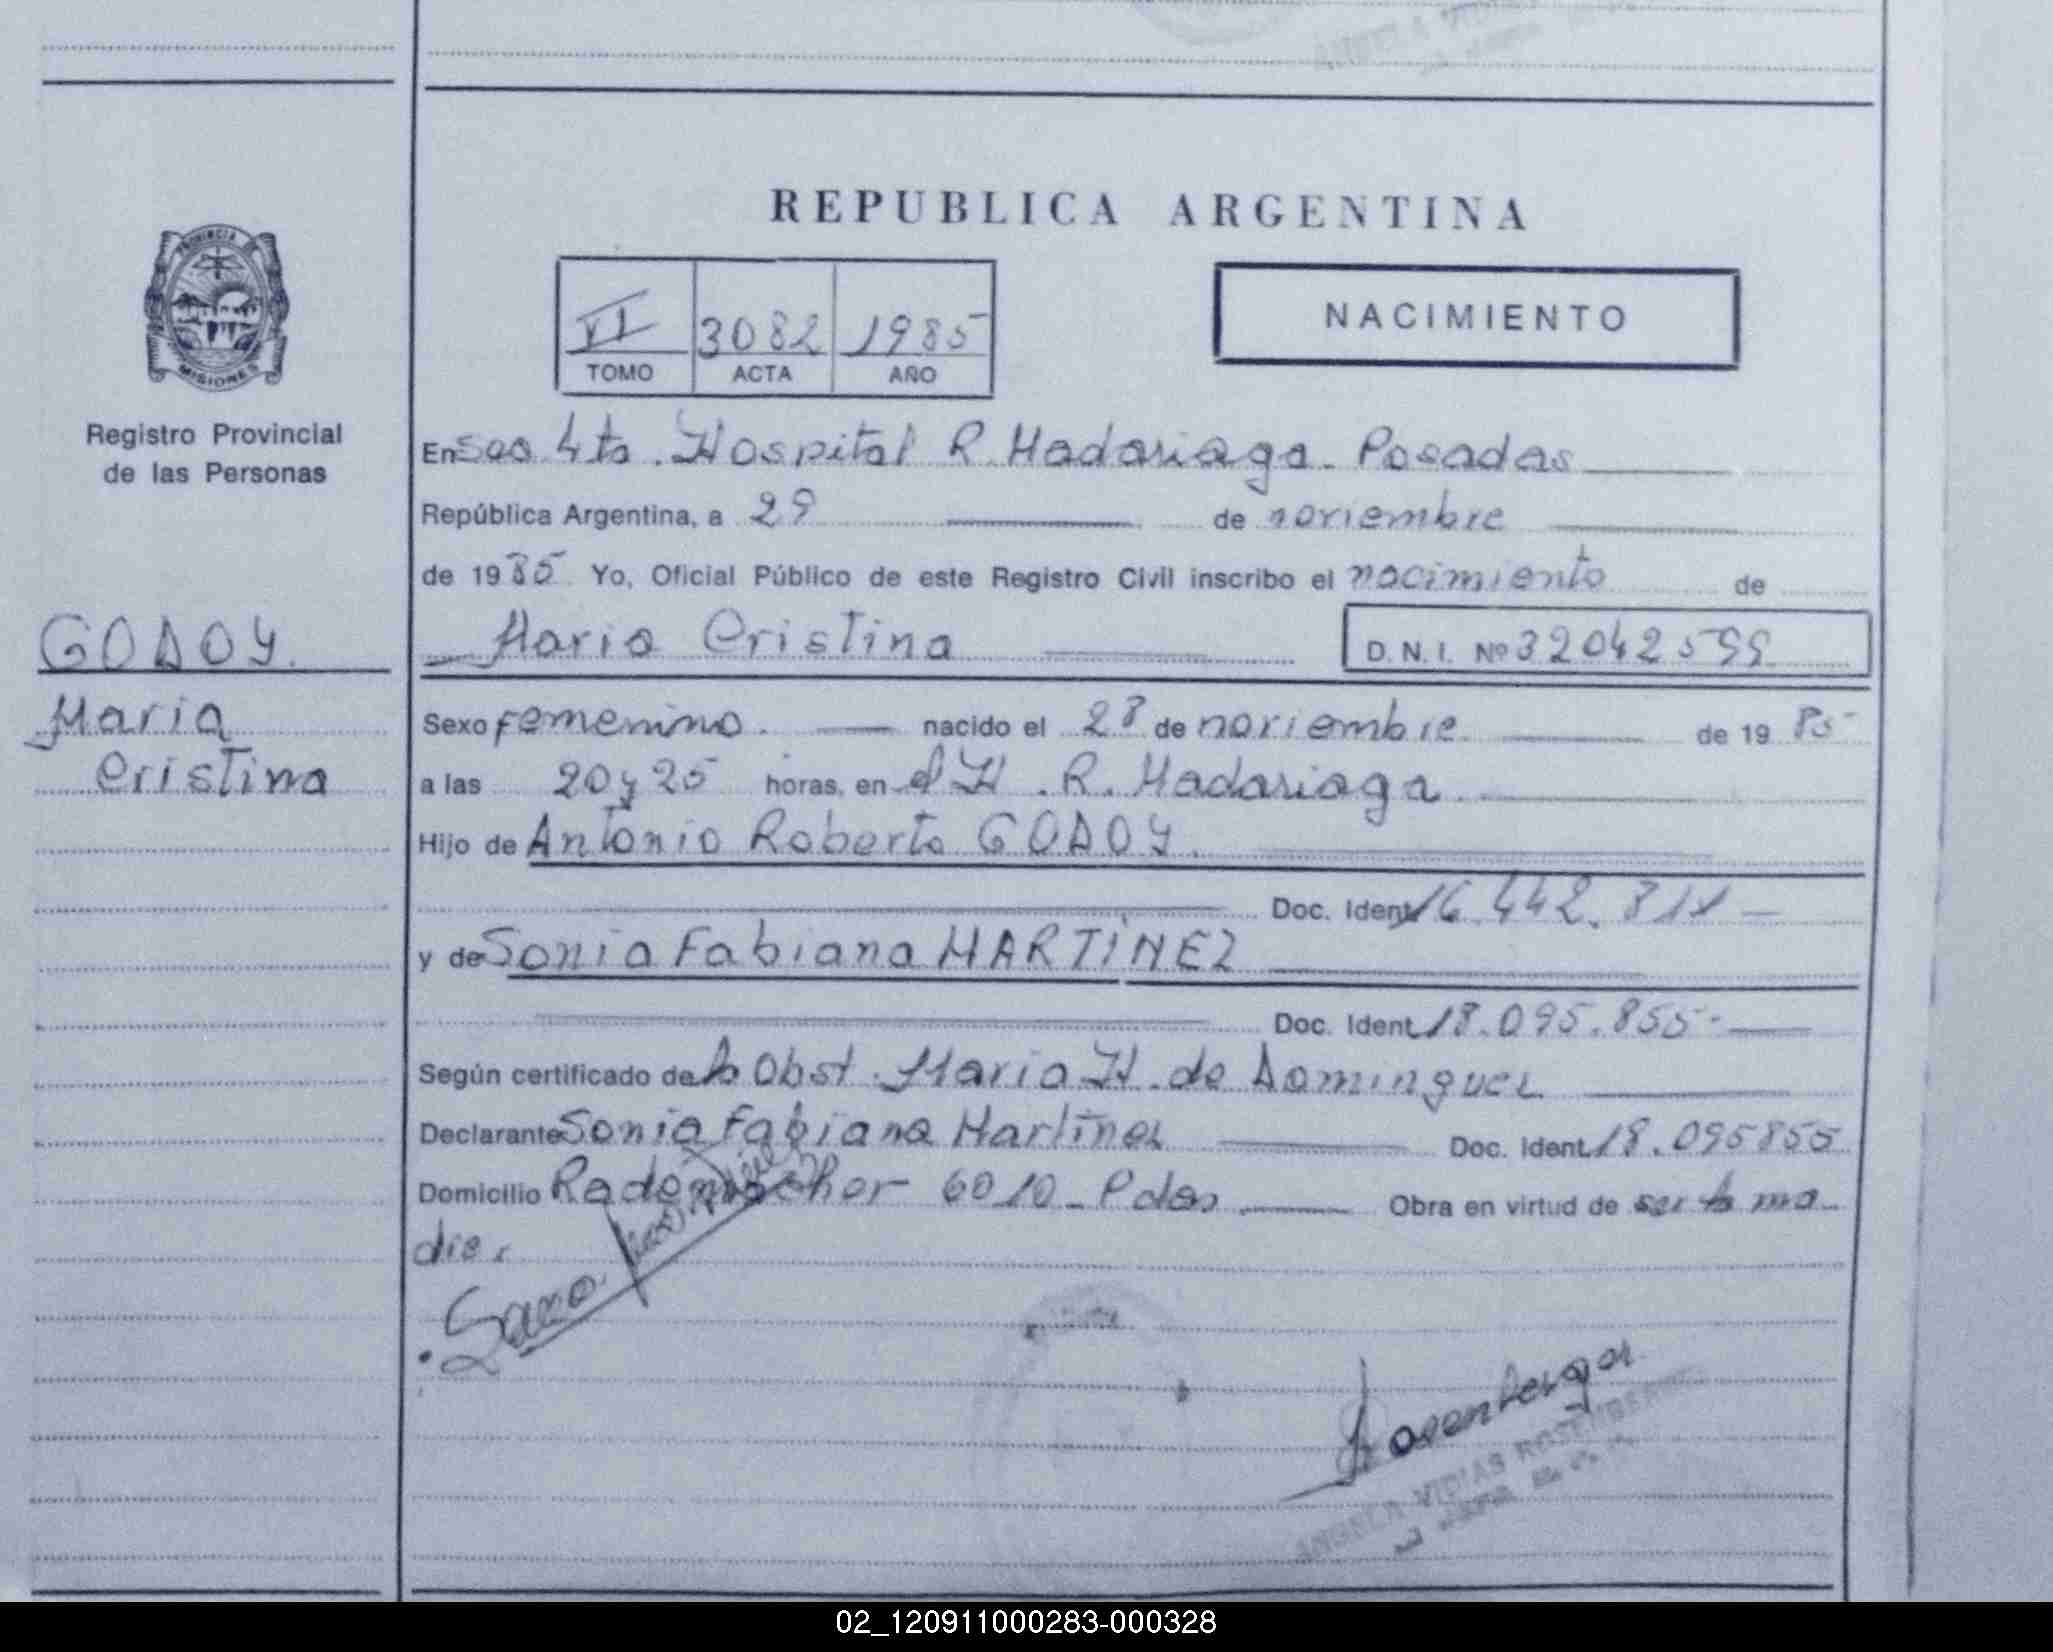 REPUBLICA ARGENTINA
PROVINCIA DE
MISIONES
Registro Provincial
de las Personas
VI 3082 1985
TOMO ACTA AÑO
NACIMIENTO
En Sec 4ta. Hospital R. Madariaga - Posadas
República Argentina, a 29 de noviembre
de 1985 Yo, Oficial Público de este Registro Civil inscribo el nacimiento de
GODOY.
Maria Cristina D.N.I. Nº 32042599
Maria
Cristina
Sexo femenino. nacido el 28 de noviembre de 1985
a las 20 y 25 horas, en el H. R. Madariaga
Hijo de Antonio Roberto GODOY.
Doc. Ident. 16.442.
y de Sonia Fabiana MARTÍNEZ
Doc. Ident. 18.095.855-
Según certificado de la Obst. Maria H. de Dominguez
Declarante Sonia Fabiana Martínez Doc. Ident. 18.095855
Domicilio 6010 - Pdas Obra en virtud de ser la ma-
dre.
Rosenberger
ANGELA VIDIAS
02_120911000283-000328